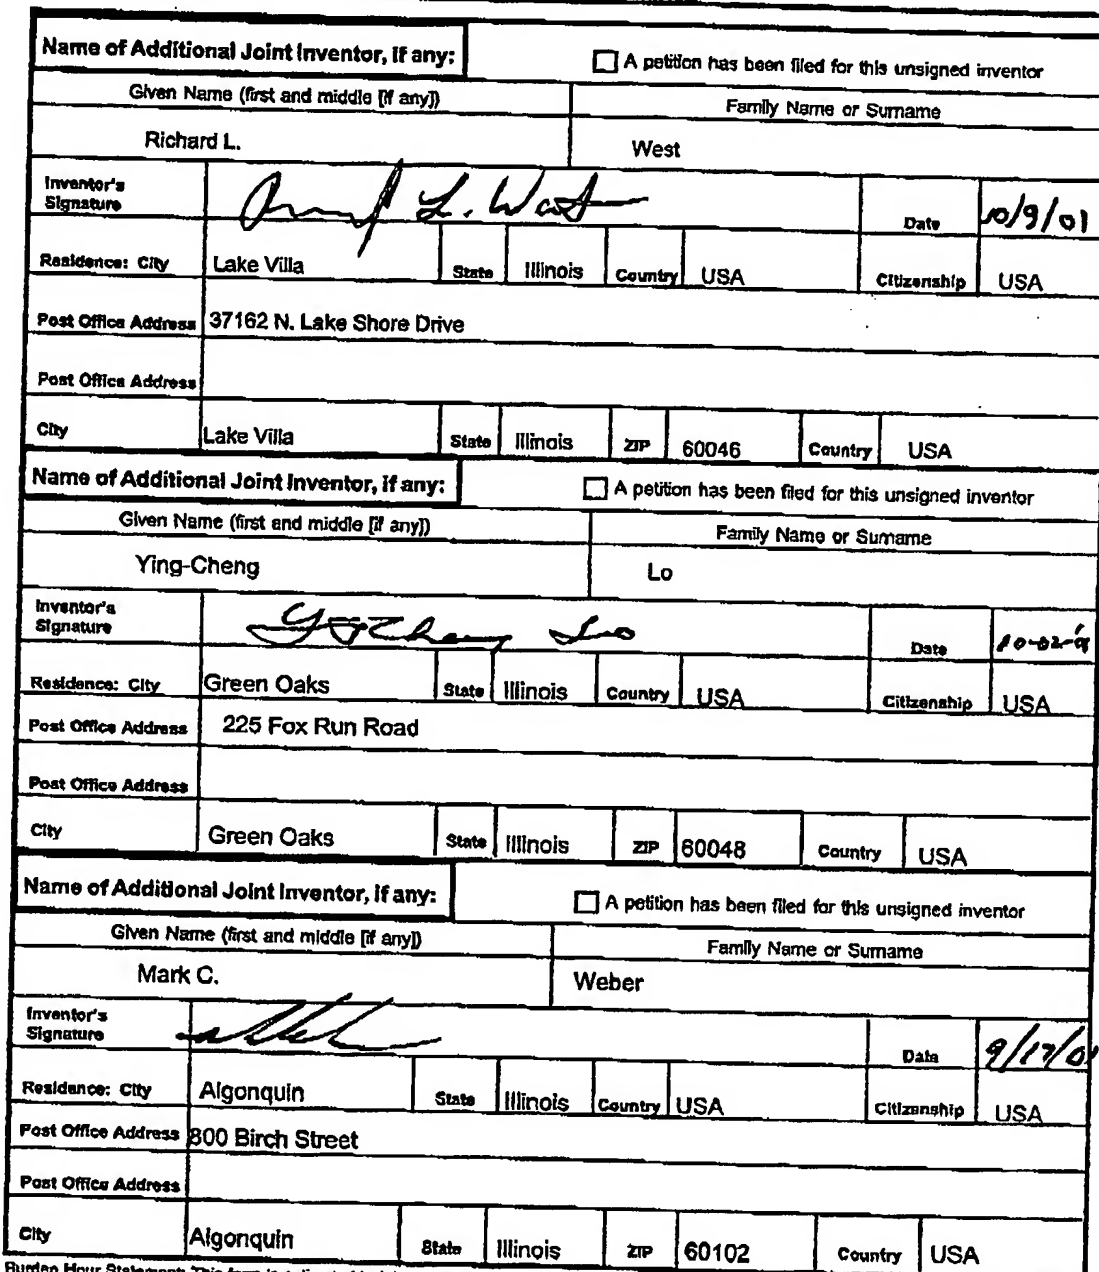 Name of Additional Joint Inventor, if any: ☐ A petition has been filed for this unsigned inventor
Given Name (first and middle [if any]) Family Name or Surname
Richard L. West
Inventor's Signature L. West Date 10/9/01
Residence: City Lake Villa State Illinois Country USA Citizenship USA
Post Office Address 37162 N. Lake Shore Drive
Post Office Address
City Lake Villa State Illinois ZIP 60046 Country USA
Name of Additional Joint Inventor, if any: ☐ A petition has been filed for this unsigned inventor
Given Name (first and middle [if any]) Family Name or Surname
Ying-Cheng Lo
Inventor's Signature Lo Date
Residence: City Green Oaks State Illinois Country USA Citizenship USA
Post Office Address 225 Fox Run Road
Post Office Address
City Green Oaks State Illinois ZIP 60048 Country USA
Name of Additional Joint Inventor, if any: ☐ A petition has been filed for this unsigned inventor
Given Name (first and middle [if any]) Family Name or Surname
Mark C. Weber
Inventor's Signature Date 9/17/01
Residence: City Algonquin State Illinois Country USA Citizenship USA
Post Office Address 800 Birch Street
Post Office Address
City Algonquin State Illinois ZIP 60102 Country USA
Burden Hour Statement: This form is